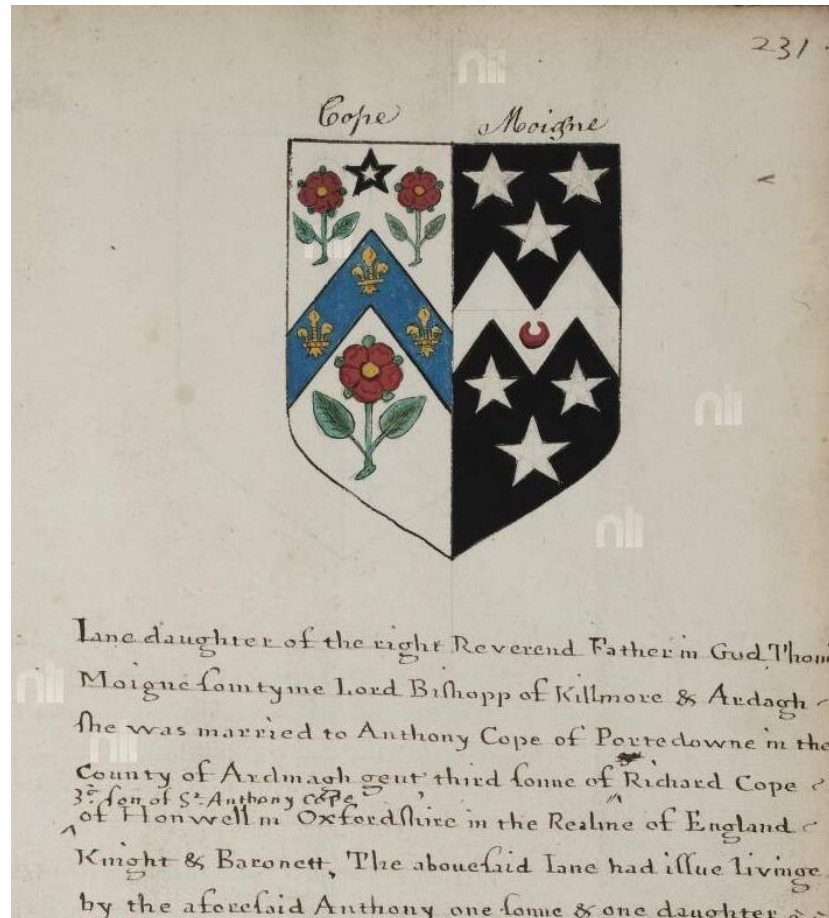 231
Cope Moigne
Iane daughter of the right Reverend Father in God Thom
Moigne somtyme Lord Bishopp of Killmore & Ardagh
she was married to Anthony Cope of Portedowne in the
County of Ardmagh gent third sonne of Richard Cope
3º son of Sr Anthony Cope
of Honwell in Oxfordshire in the Realme of England
Knight & Baronett, The abouesaid Iane had issue livinge
by the aforesaid Anthony one sonne & one daughter
nli
nli
nli
nli
nli